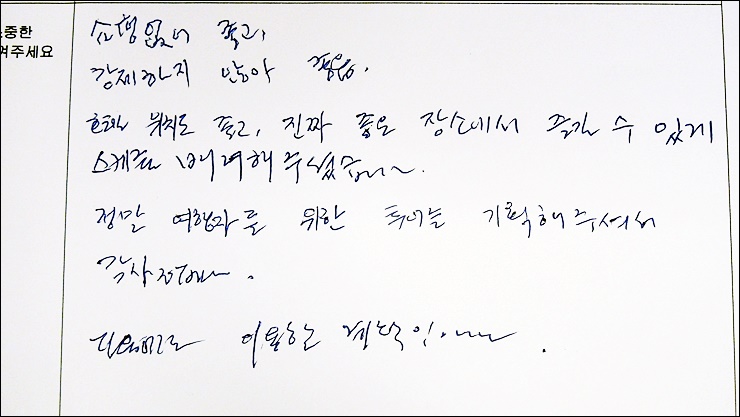 소중한
여주세요
쇼핑없어 좋고,
강제하지 않아 좋음.
호텔 위치도 좋고, 진짜 좋은 장소에서 즐길 수 있게
스케줄 배려해 주셨습니다.
정말 여행자를 위한 투어를 기획해주셔서
감사합니다.
다음에도 이용할 계획입니다.